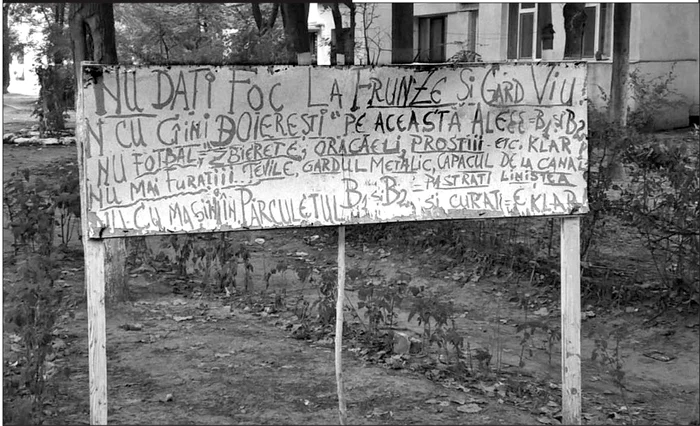 NU DAȚI FOC LA FRUNZE ȘI GARD VIU
N CU CÎINI BOIEREȘTI "PE ACEASTĂ ALEEE-B1ȘIB2
NU FOTBAL, ZBIERETE, ORĂCĂELI, PROSTIII-ETC. KLAR?
NU MAI FURAȚIII. ȚEVILE, GARDUL METALIC, CAPACUL DE LA CANAL
NU CU MAȘINI ÎN PĂRCULEȚUL B1 ȘI B2 -PĂSTRAȚI LINIȘTEA
ȘI CURĂȚ=E KLAR